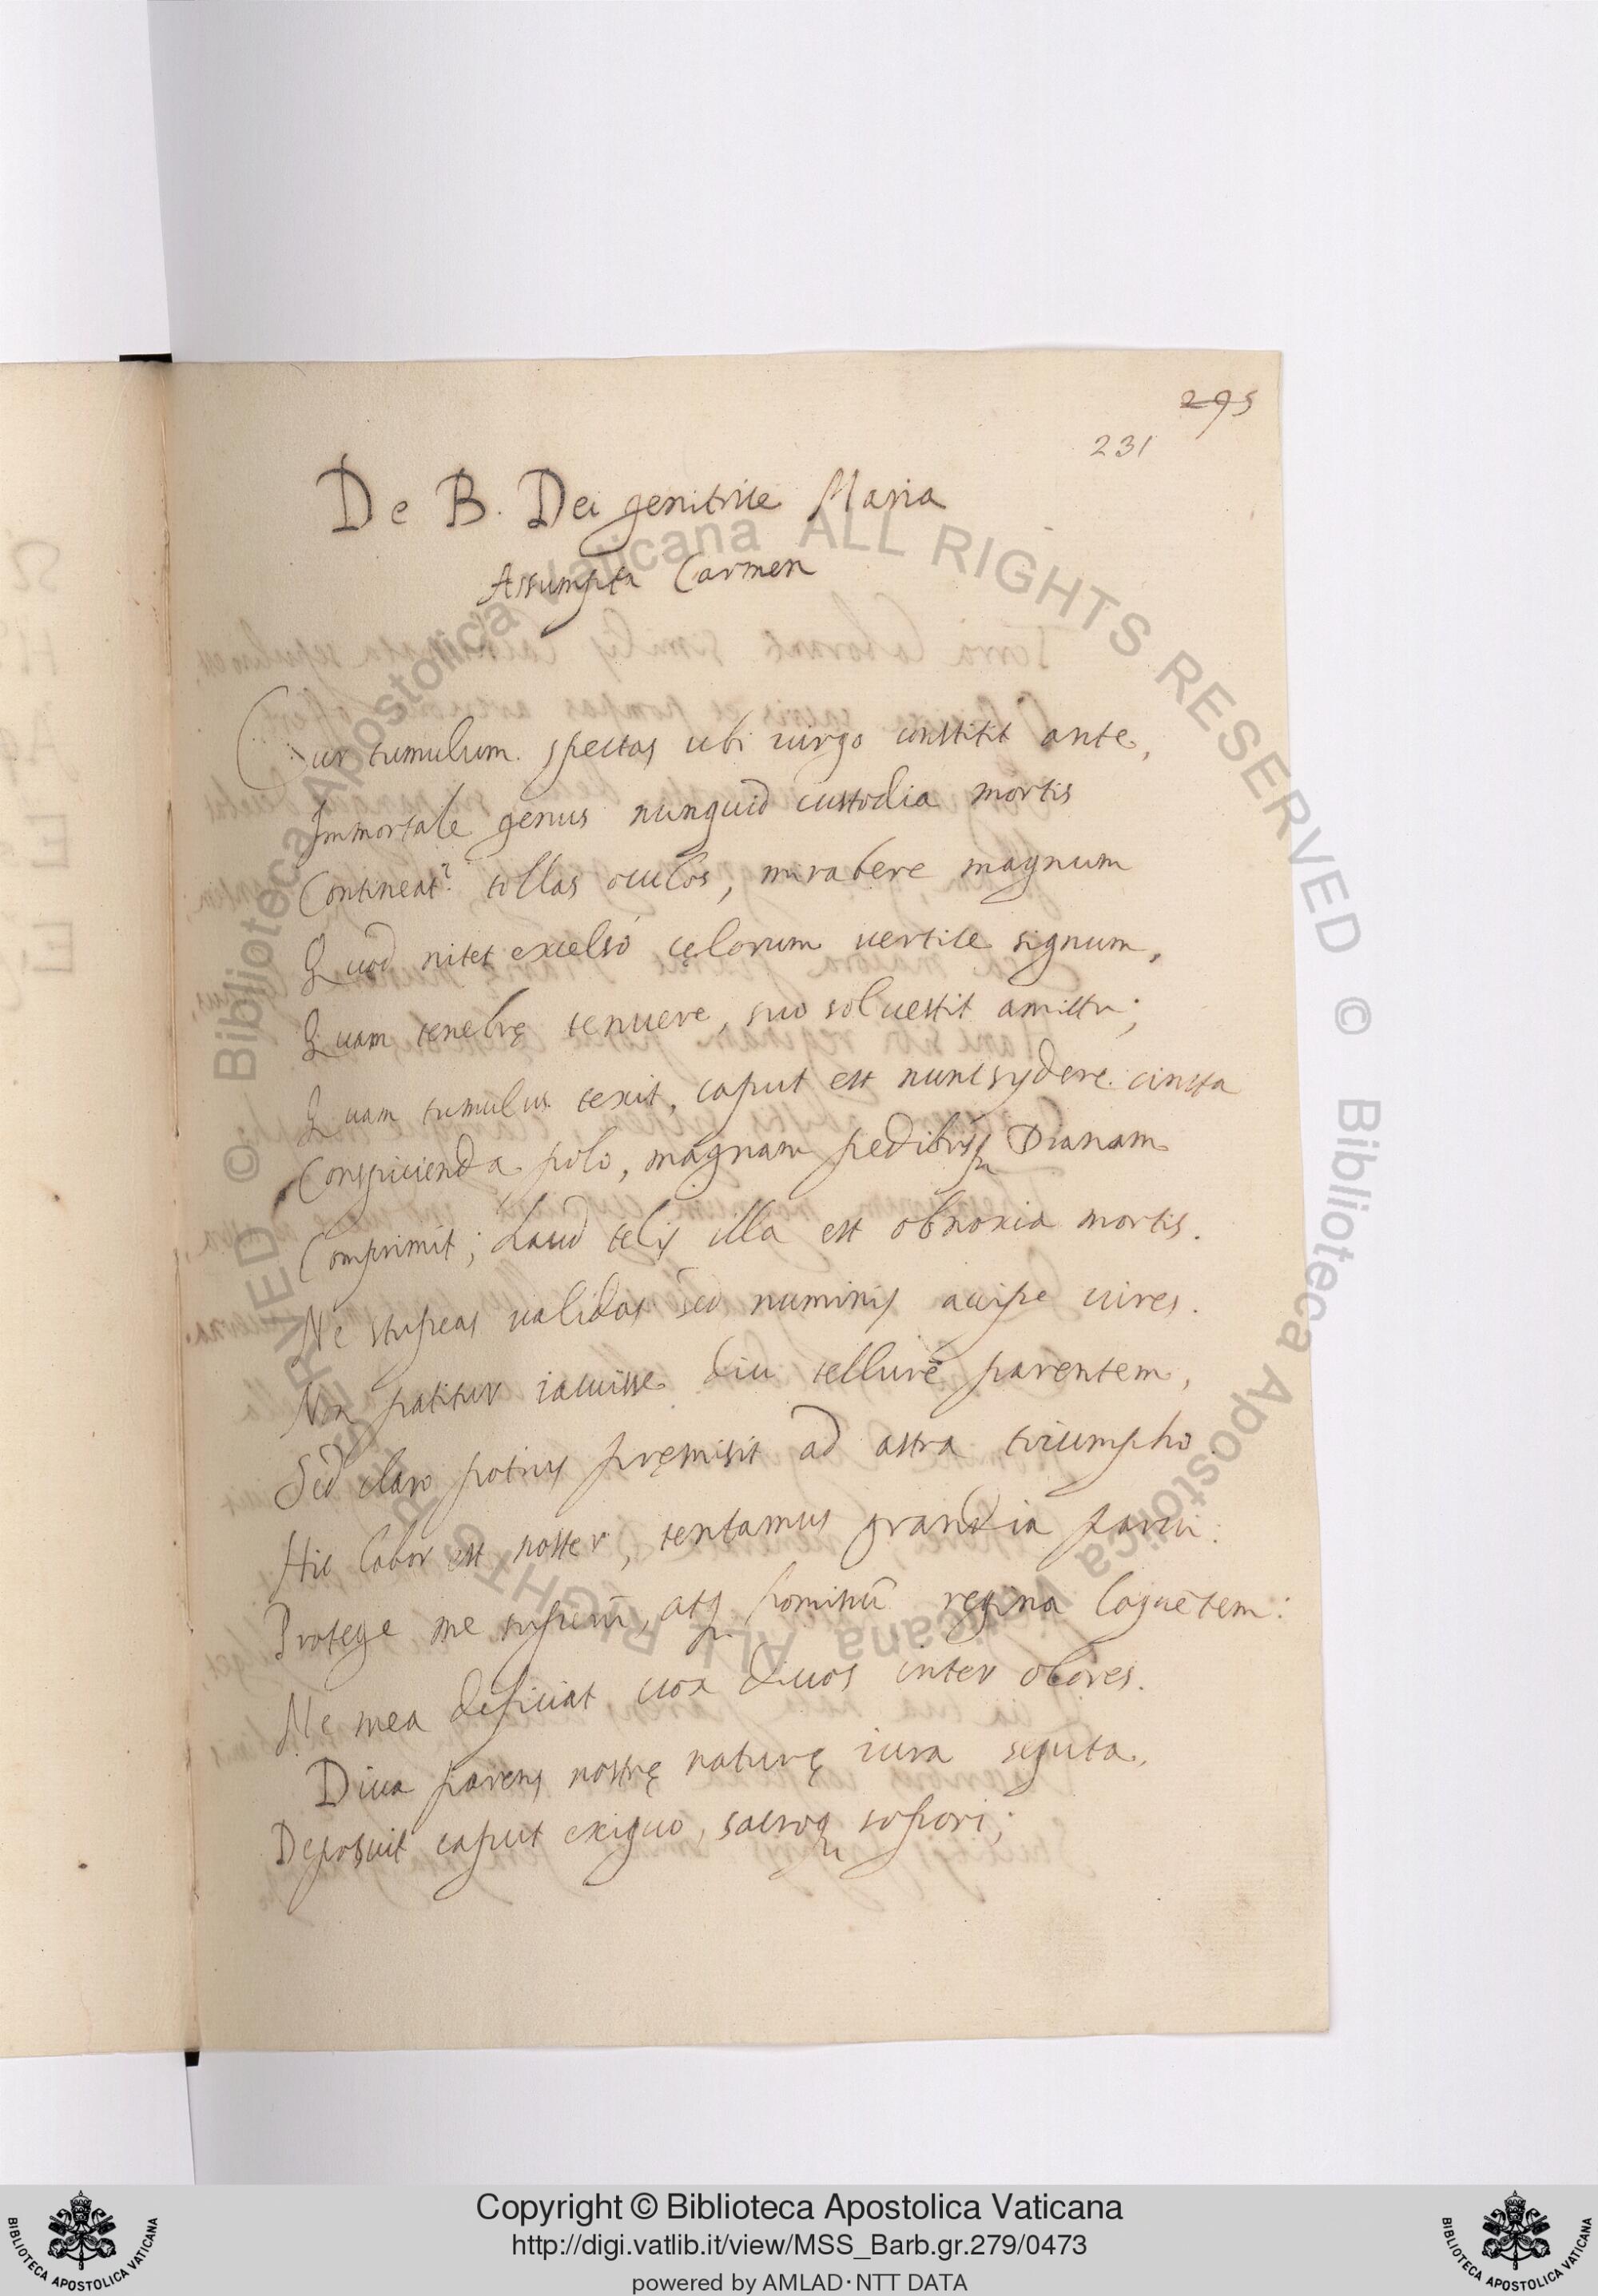 295
231
De B. Dei genitrice Maria
Assumpta Carmen
Cur tumulum spectas ubi uirgo constitit ante,
Immortale genus nunquid custodia mortis
Contineat? tollas oculos, mirabere magnum
Quod nitet excelso cęlorum uertice signum,
Quam tenebrę tenuere, suo sol uestit amictu;
Quam tumulus texit, caput est nunc sydere cincta
Conspicienda polo, magnam pedibusq Dianam
Comprimit; haud telis illa est obnoxia mortis.
Ne stupeas ualidas sed numinis accipe uires.
Non patitur iacuisse diu tellurē parentem,
Sed claro potius pręmisit ad astra triumpho
Hic labor est noster, tentamus grandia parui:
Protege me superū, atq hominū regina loquētem:
Ne mea deficiat uox diuos inter olores.
Diua parens nostrę naturę iura secuta,
Deposuit caput exiguo, sacroq sopori;
Copyright © Biblioteca Apostolica Vaticana
http://digi.vatlib.it/view/MSS_Barb.gr.279/0473
powered by AMLAD·NTT DATA
BIBLIOTECA APOSTOLICA VATICANA
BIBLIOTECA APOSTOLICA VATICANA